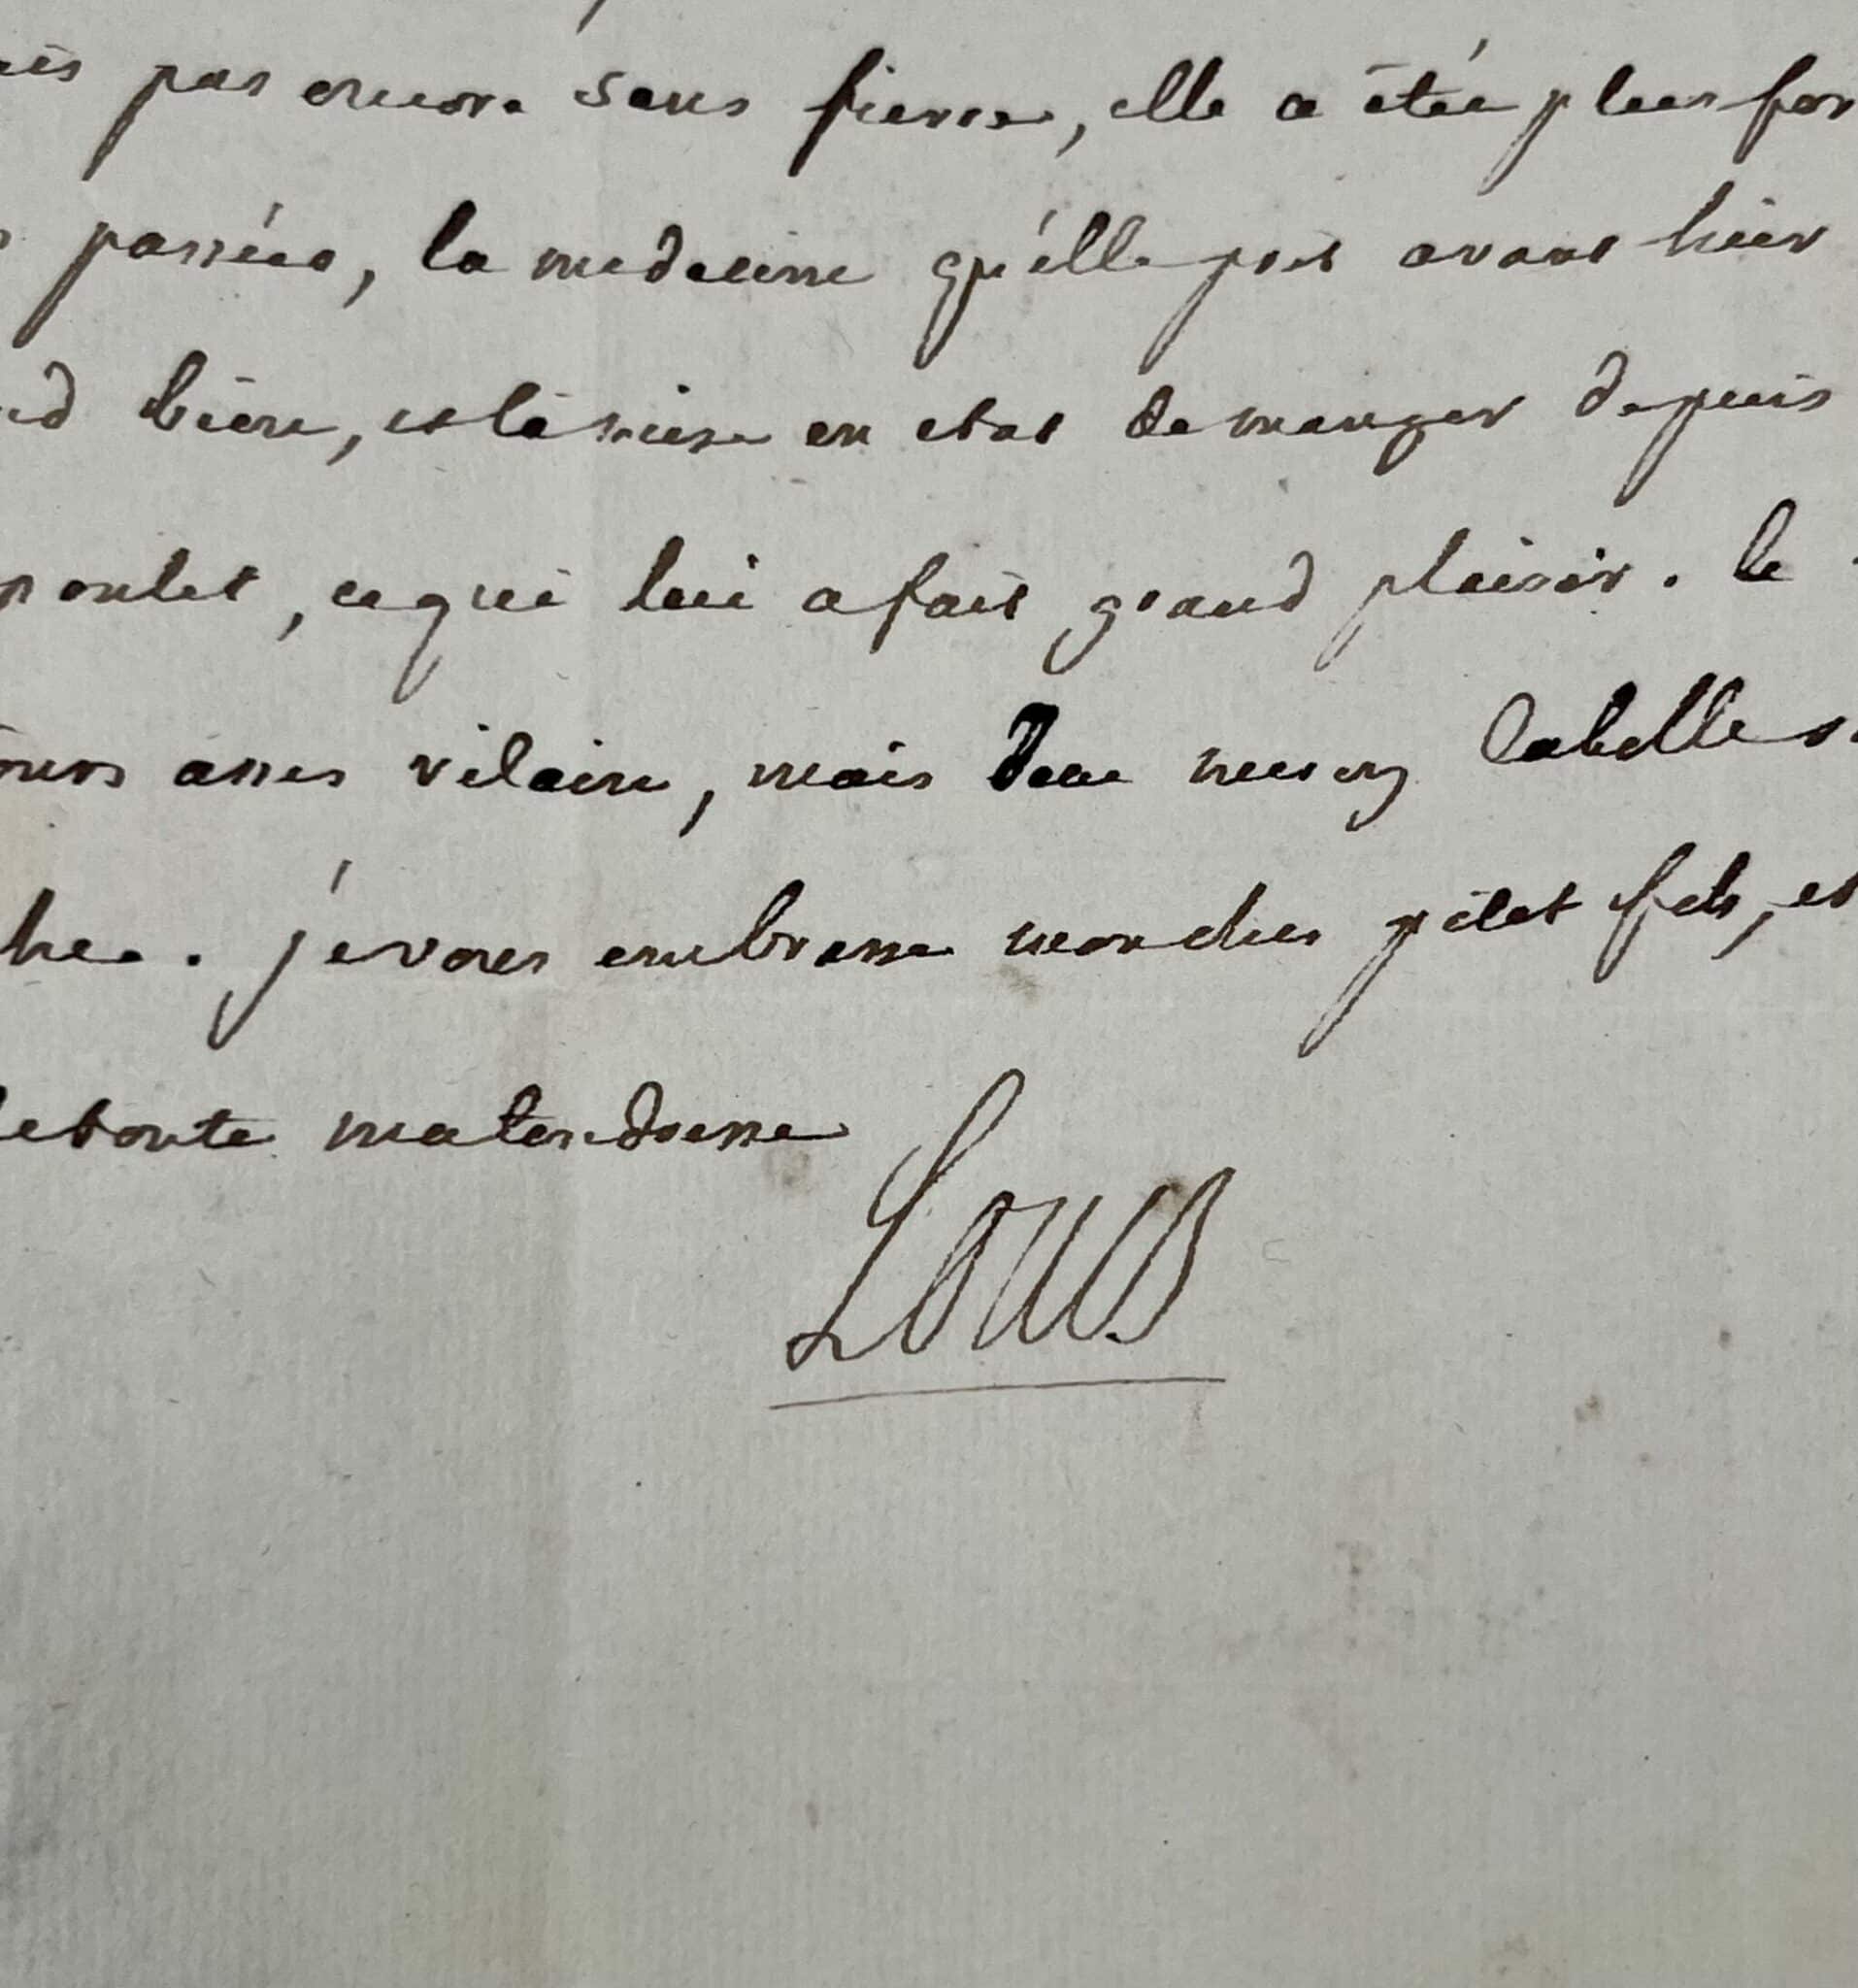 ais pas encore sans fievre, elle a étée plus for
passées, la medecine qu'elle prit avant hier
d bien, et la mise en etat de manger depuis
poulet, ce qui lui a fait grand plaisir. le
ours asses vilain, mais la belle s
he. je vous embrasse mon cher petit fils, et
de toute ma tendresse
Louis